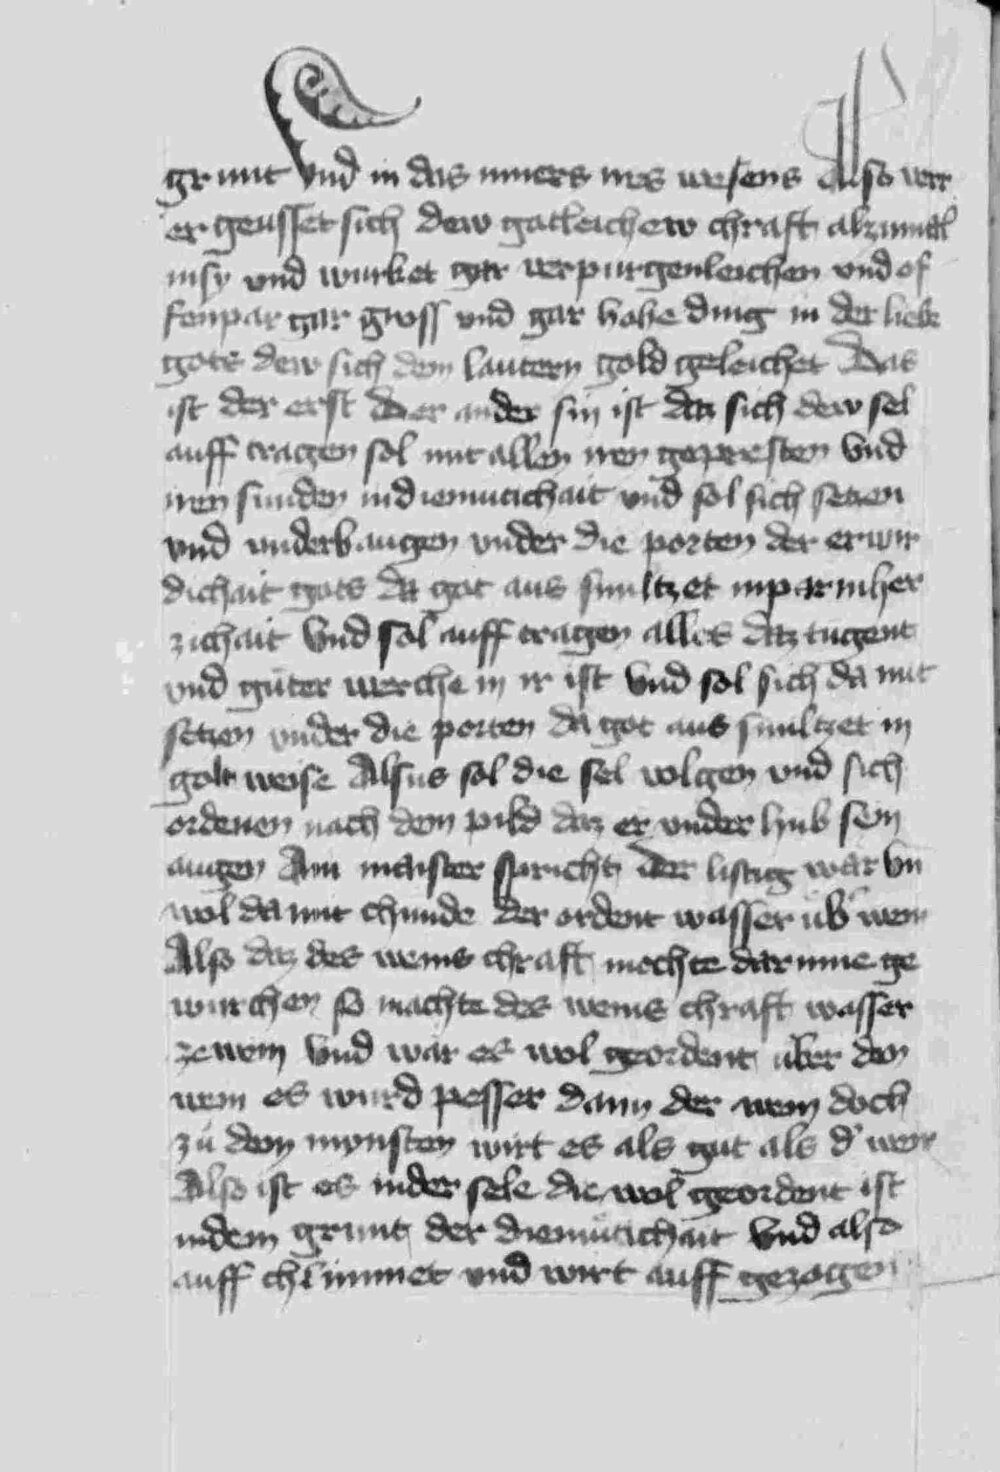 grunt vnd in das inners irs wesens Also verr
ergeusset sich dew gotleichew chraft alzumal
in sy vnd wurket gar verpurgenleichen vnd of
fenpar gar gross vnd gar hohe ding in der liebe
gots dew sich dem lautern gold geleichet Das
ist der erst Der ander sin ist daz sich dew sel
auff tragen sol mit allen iren gepresten vnd
iren sunden in diemutichait vnd sol sich setzen
vnd vnder augen vnder die porten der erwir
dichait gots da got aus smiltzet in parmher
zichait vnd sol auff tragen alles daz tugent
vnd guter werche in ir ist vnd sol sich da mit
setzen vnder die porten da got aus smiltzet in
gotz weise Alsus sol die sel volgen vnd sich
ordenen nach dem pild daz er vnder hub sein
augen Ain maister spricht der listig war vn
wol da mit chunde der ordent wasser ub wein
Also daz des weins chraft mochte dar inne ge
wurchen so machte des weins chraft wasser
ze wein vnd war es wol geordent uber den
wein es wurd pesser dann der wein doch
zu dem mynsten wirt es als gut als d' wein
Also ist es in der sele die wol geordent ist
in dem grunt der diemutichait vnd also
auff chlimmet vnd wirt auff gezogen